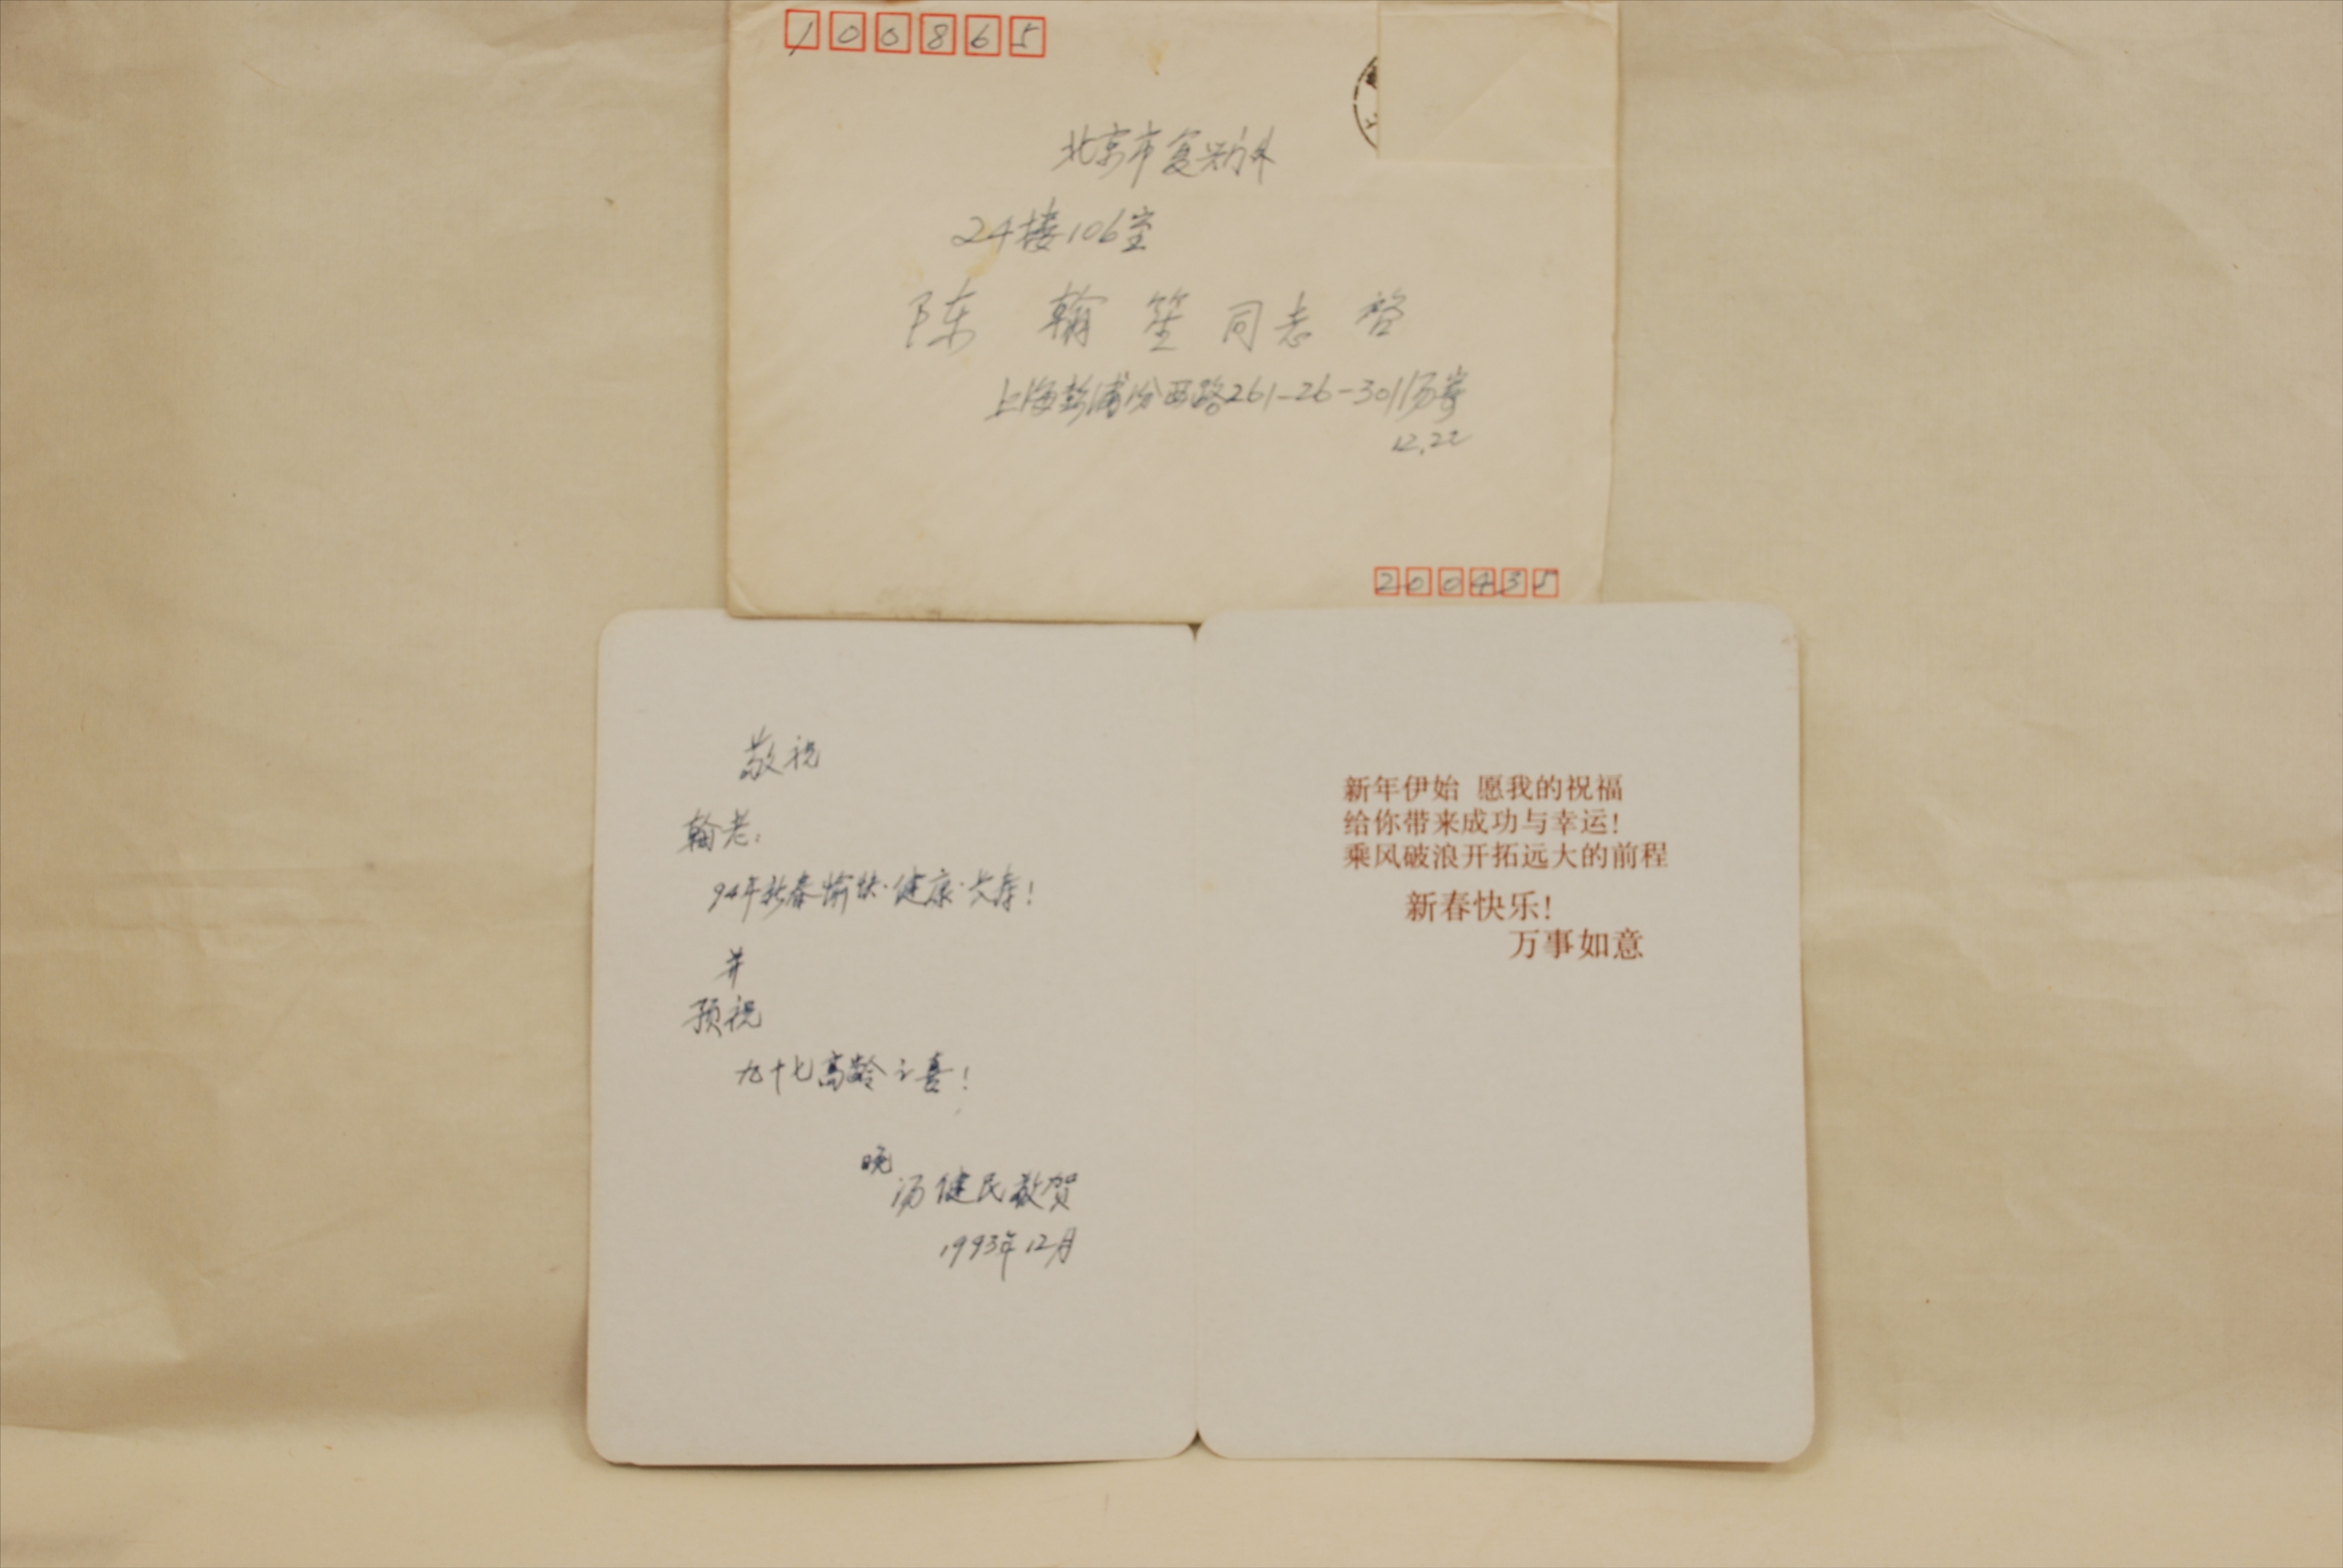 100865
北京市复兴门外
24楼106室
陈翰笙同志启
上海彭浦汾西路261-26-301汤寄
12.22
200435
敬祝
翰老:
94年新春愉快·健康·长寿!
并
预祝
九十七高龄之喜!
晚
汤健民敬贺
1993年12月
新年伊始 愿我的祝福
给你带来成功与幸运!
乘风破浪开拓远大的前程
新春快乐!
万事如意